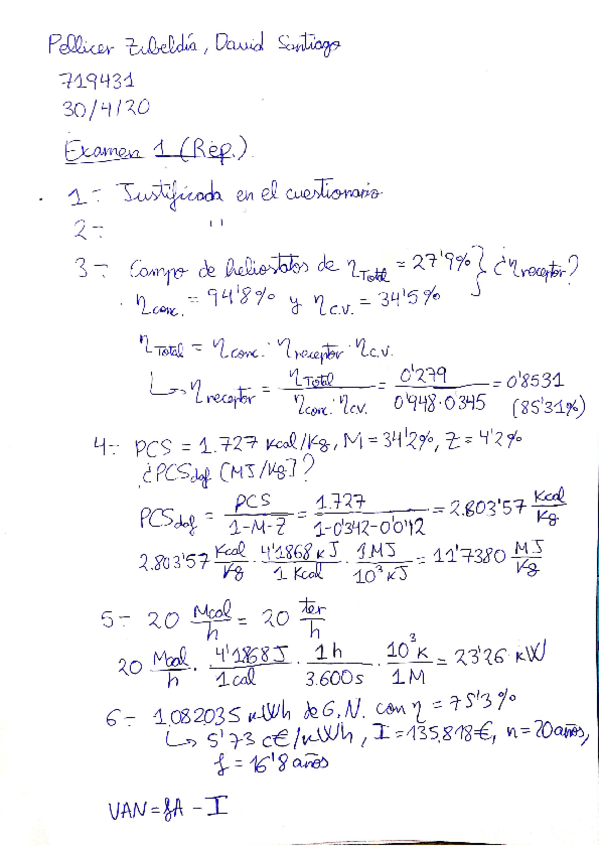 Pellicer Zubeldía, David Santiago
719431
30/4/20
Examen 1 (Rep.)
1- Justificada en el cuestionario
2- ''
3- Campo de heliostatos de η_Total = 27'9% } ¿η_receptor?
η_conc. = 94'8% y η_c.v. = 34'5%
η_Total = η_conc. · η_receptor · η_c.v.
↳ η_receptor = η_Total / (η_conc. · η_c.v.) = 0'279 / (0'948 · 0'345) = 0'8531 (85'31%)
4- PCS = 1.727 kcal/kg, M = 34'2%, Z = 4'2%
¿PCS_daf [MJ/kg]?
PCS_daf = PCS / (1-M-Z) = 1.727 / (1-0'342-0'042) = 2.803'57 kcal/kg
2.803'57 kcal/kg · 4'1868 kJ / 1 kcal · 1 MJ / 10³ kJ = 11'7380 MJ/kg
5- 20 Mcal/h = 20 ter/h
20 Mcal/h · 4'1868 J / 1 cal · 1 h / 3.600 s · 10³ k / 1 M = 23'26 kW
6- 1.082035 kWh de G.N. con η = 75'3%
↳ 5'73 c€/kWh, I = 135.818 €, n = 20 años,
f = 16'8 años
VAN = fA - I